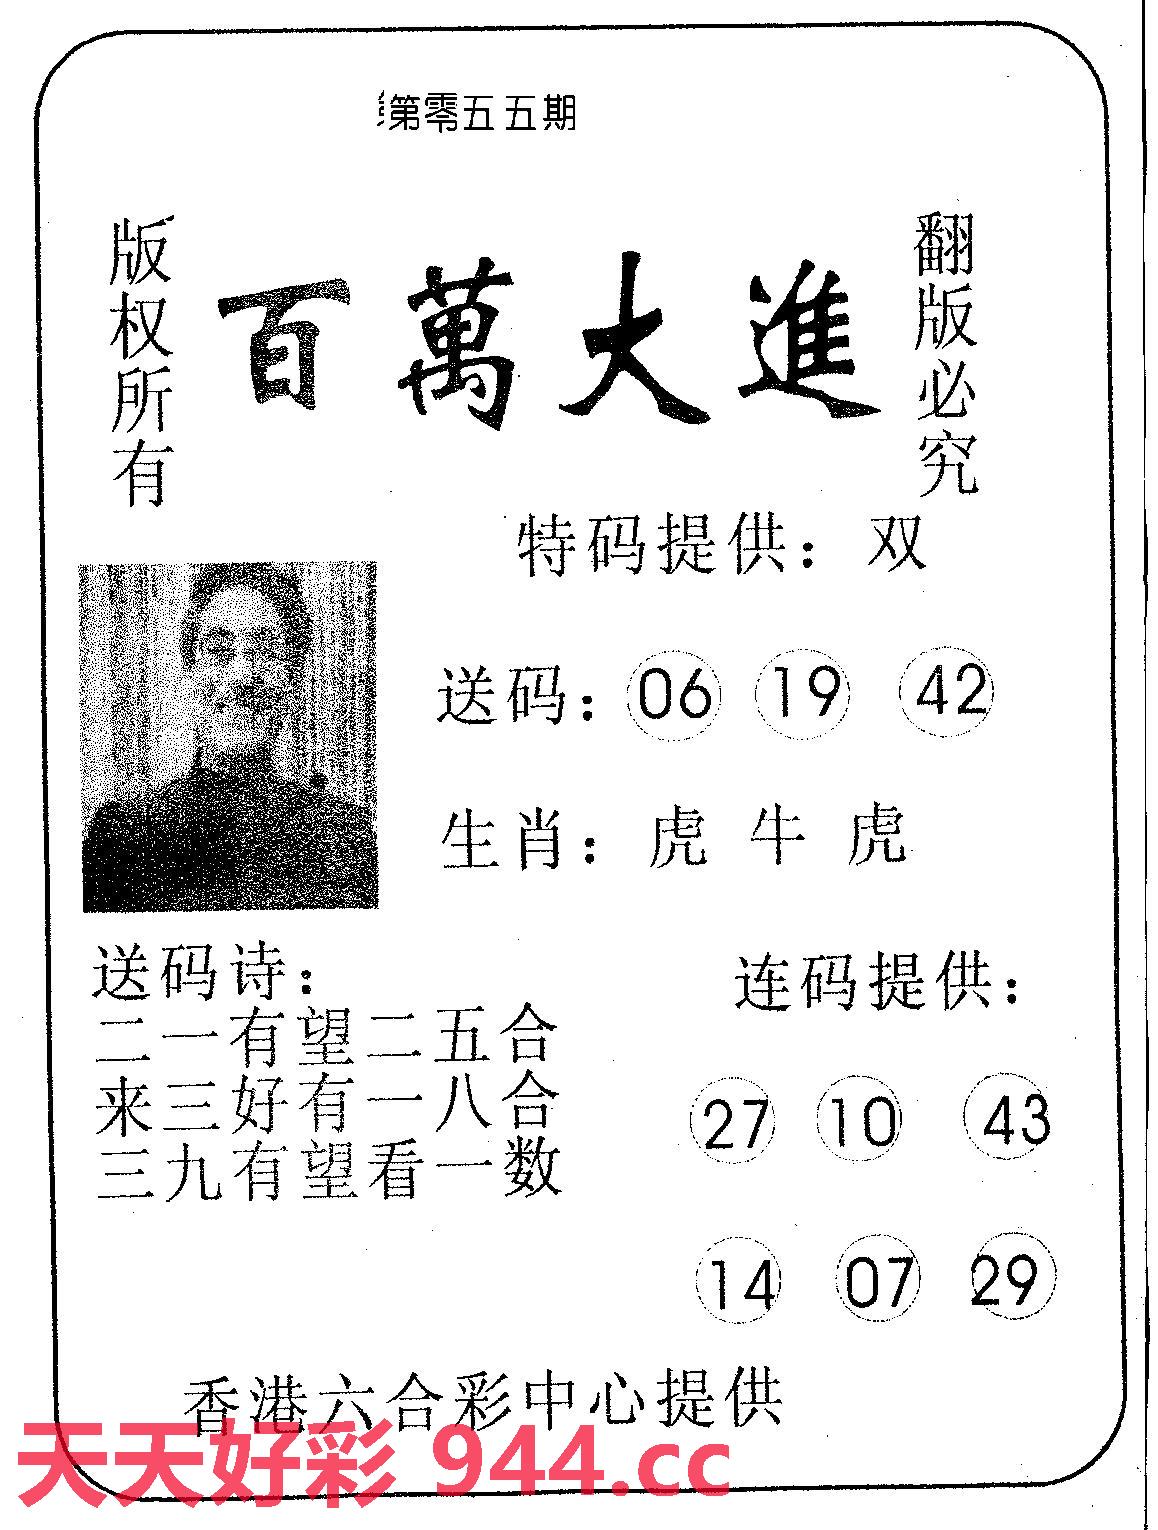 第零五五期
版权所有
百萬大進
翻版必究
特码提供：双
送码：06 19 42
生肖：虎 牛 虎
送码诗：
二一有望二五合
来三好有一八合
三九有望看一数
连码提供：
27 10 43
14 07 29
香港六合彩中心提供
天天好彩 944.cc